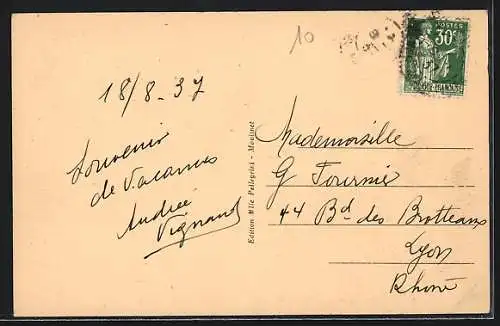 10
POSTES
30c
18/8-37
Souvenir
de Vacances
Andrée
Vignand
Edition Mlle Pellegrini - Modinet
Mademoiselle
G Fournier
44 Bd des Brotteaux
Lyon
Rhône